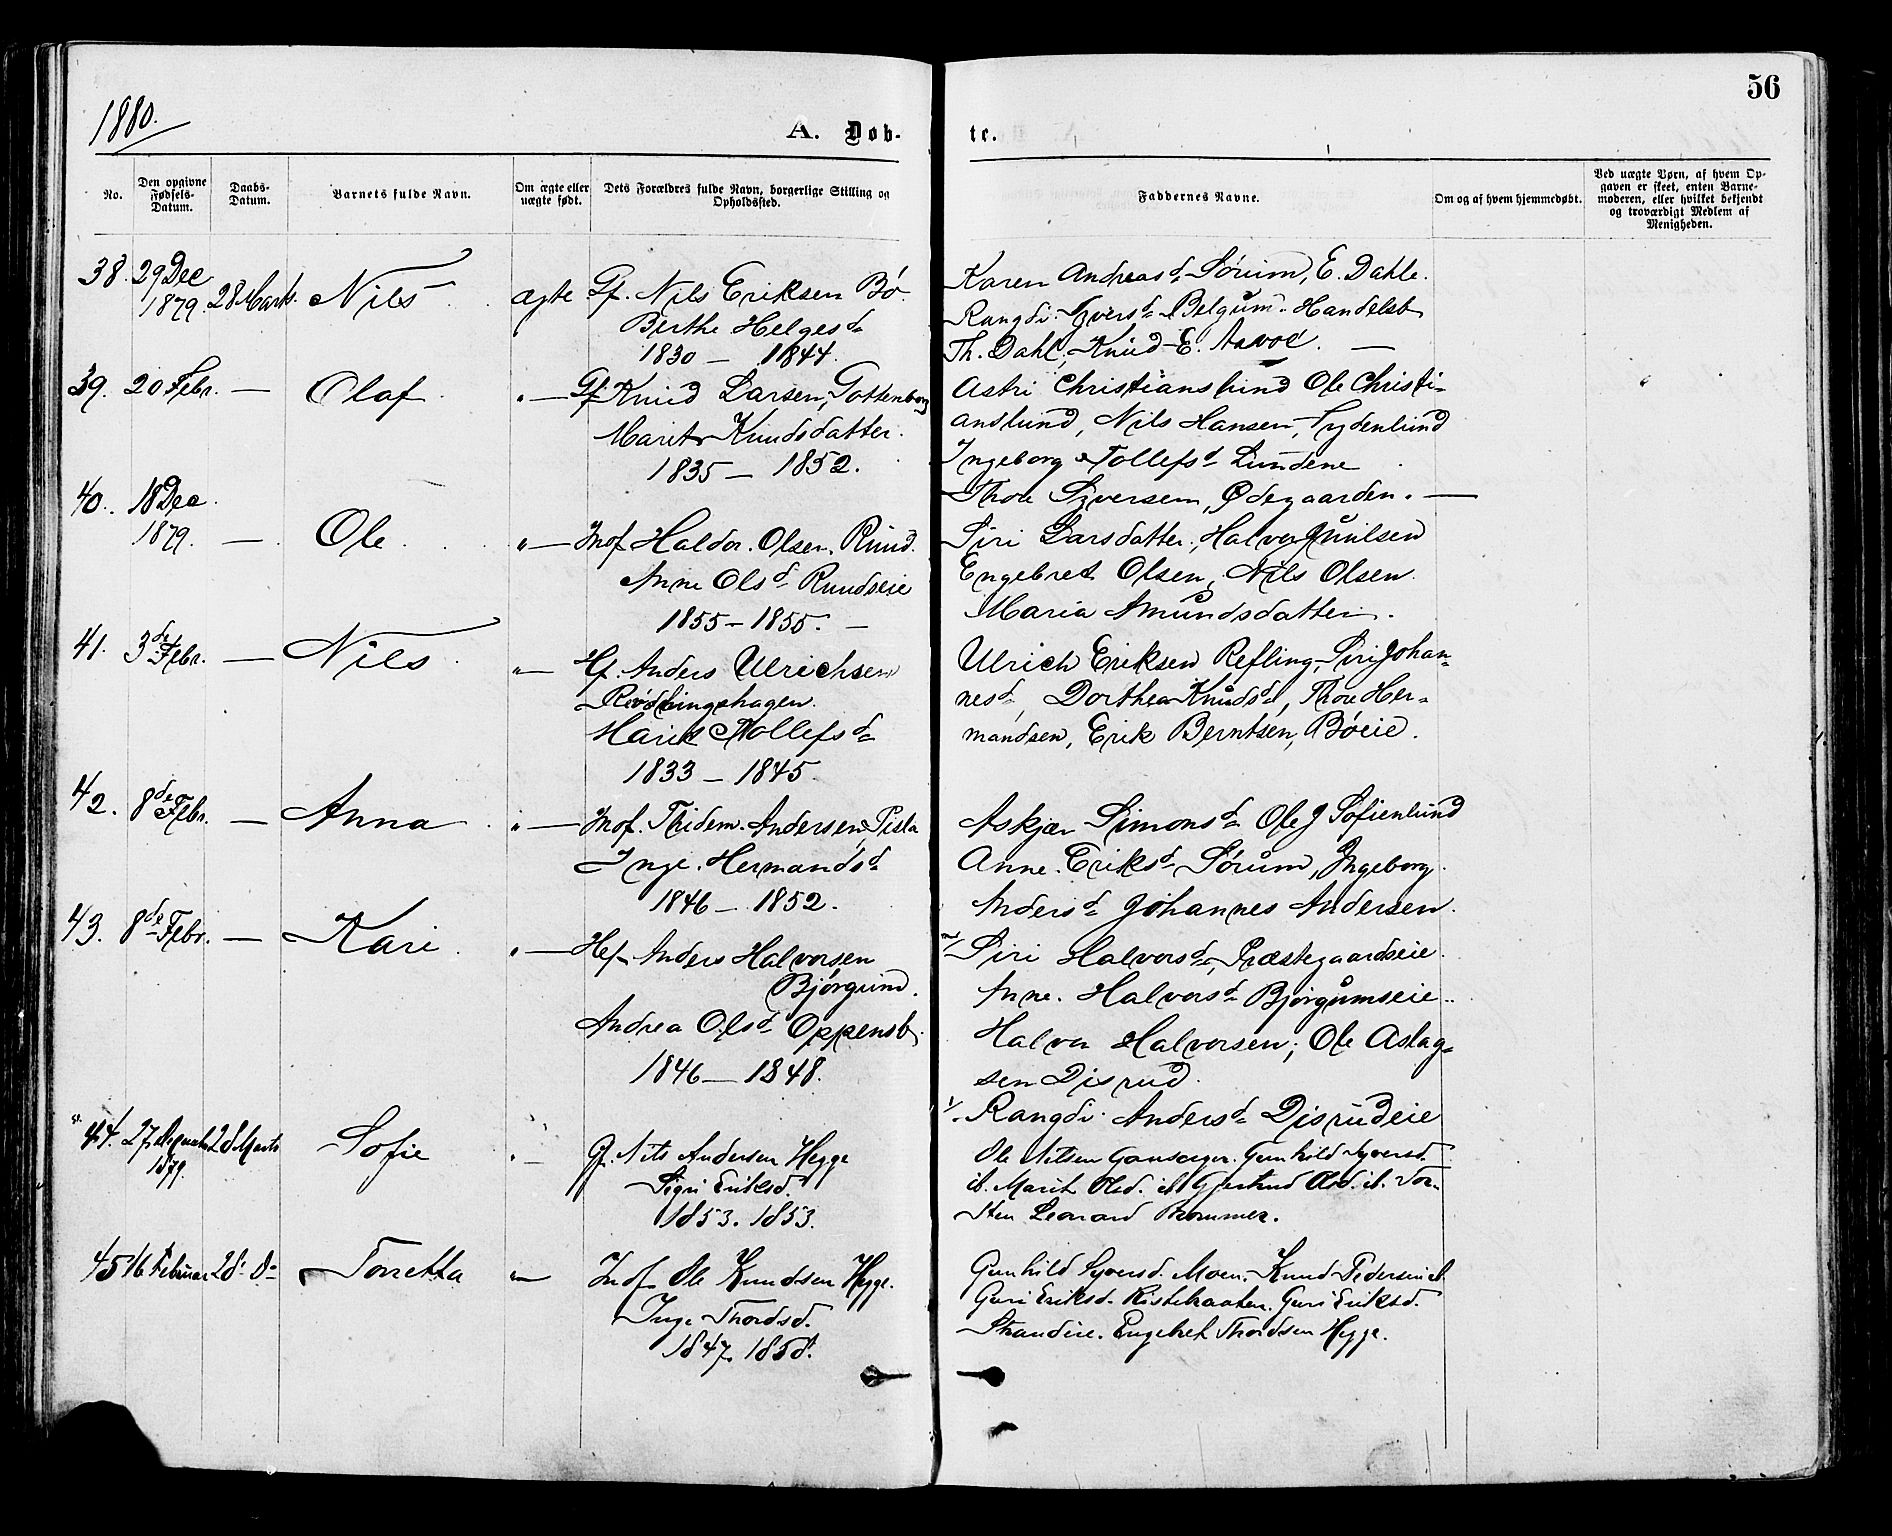 56
1880.
A. Døb-
te.
No.
Den opgivne Fødsels-Datum.
Daabs-Datum.
Barnets fulde Navn.
Om ægte eller uægte født.
Dets Forældres fulde Navn, borgerlige Stilling og Opholdssted.
Faddernes Navne.
Om og af hvem hjemmedøbt.
Ved uægte Børn, af hvem Op-
gaven er skeet, enten Barne-
moderen, eller hvilket bekjendt
og troværdigt Medlem af
Menigheden.
38. 29 Dec 1879. 28 Marts. Nils ægte Gf. Nils Eriksen Bø.
Berthe Helgesd
1830 — 1844.
Karen Andreasd Sørum, E. Dahle.
Rangdi Syversd Belgum. Handelsb
Th. Dahl, Knud E. Aavoe. —
39. 20 Febr. — Olaf " — Gf Knud Larsen, Gottenborg
Marit Knudsdatter.
1835 — 1852.
Astri Christianslund Ole Christi-
anslund, Nils Hansen, Lydenlund
Ingeborg Tollefsd Lundene
Thore Syversen, Ødegaarden. —
40. 18 Dec 1879. — Ole " — Inds. Haldor Olsen Ruud.
Anne Olsd Ruudseie
1855 — 1855. —
Siri Larsdatter, Halvor
Engebret Olsen, Nils Olsen
Maria Amundsdatter.
41. 3de Febr. — Nils " — Hf. Anders Ulrichsen
Marit Tollefsd
1833 — 1845.
Ulrich Eriksen Refling, Siri Johan-
nesd, Dorthea Knudsd, Thore Her-
mandsen, Erik Berntsen, Bøeie.
42. 8de Febr. — Anna " — Inds. Thidem. Andersen
Inge. Hermandsd
1846 — 1852.
Askjær Simonsd Ole J Sofienlund
Anne. Eriksd Sørum, Ingeborg
Andersd Johannes Andersen.
43. 8de Febr. — Kari " — Anders Halvorsen
Bjørgum.
Andrea Olsd Oppensb
1846 — 1848.
Siri Halvorsd, Præstegaardseie.
Anne. Halvorsd Bjørgumseie..
Halvor Halvorsen, Ole Aslag-
sen Disrud.
Rangdi Andersd Disrudeie
44. 27 1879. 28 Marts Sofie " — Gf. Nils Andersen Hegge
Sigri Eriksd.
1853. 1853.
Ole Nilsen Gunhild Syversd.
ib. Marit Olsd. ib Gjertrud Olsd. ib. Tor-
sten Leonard Brommer.
45 16 Februar 28. Do Torretta " — Inds Ole Knudsen Hegge.
Inge Thordsd.
1847. 1858.
Gunhild Syversd. Moen. Knud Pedersen ib.
Guri Eriksd. Ristebraaten. Guri Eriksd.
Strandeie. Engebret Thordsen Hegge.